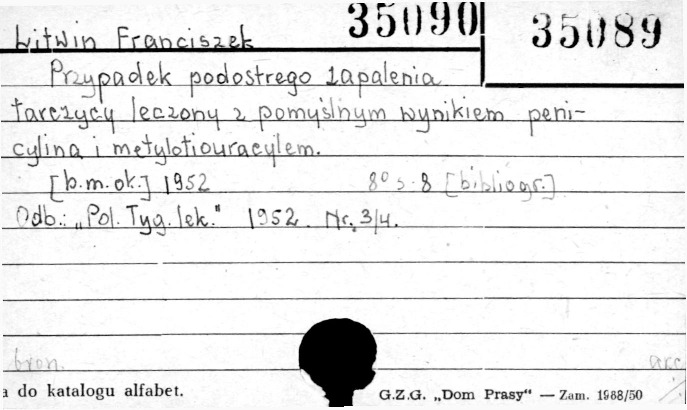 35090 35089
Litwin Franciszek
Przypadek podostrego zapalenia
tarczycy leczony z pomyślnym wynikiem peni-
cyliną i metylotiouracylem.
[b.m.ok.] 1952 8° s. 8 [bibliogr.]
Odb.: „Pol. Tyg. lek." 1952. Nr. 3/4.
bron. arc
a do katalogu alfabet. G.Z.G. „Dom Prasy" — Zam. 1988/50